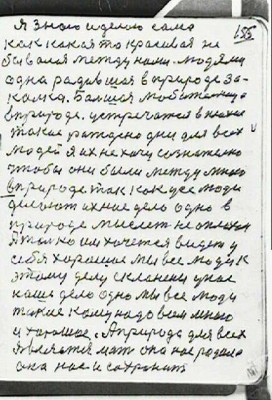 155
я знаю и делаю сама
как какая то красивая не
бывало между нами людями
одна радившая в природе за-
калка. Балшая любителница
в природе. устречатся в
такие раждено дни для всех
людей я их не хочу
чтобы они были между мною
в природе так как усе люди
делают их ное дело одно в
природе мыслет не
а только им хочется видеть у
себя харошае мы все люди к
этому делу склонены у нас
наше дело одно мы все люди
такие каму надо всем много
и харошае. А природа для всех
является мать она нас радила
она нас и сохранит